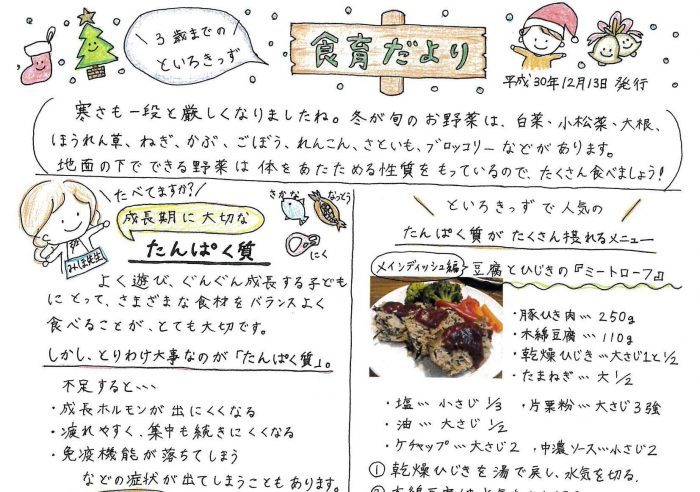 3歳までの
といろきっず
食育だより
平成30年12月13日 発行
寒さも一段と厳しくなりましたね。冬が旬のお野菜は、白菜・小松菜・大根、
ほうれん草、ねぎ、かぶ、ごぼう、れんこん、さといも、ブロッコリーなどがあります。
地面の下でできる野菜は体をあたためる性質をもっているので、たくさん食べましょう!
たべてますか?
成長期に大切な
たんぱく質
さかな
なっとう
にく
みほ先生
よく遊び、ぐんぐん成長する子ども
にとって、さまざまな食材をバランスよく
食べることが、とても大切です。
しかし、とりわけ大事なのが「たんぱく質」。
不足すると…
・成長ホルモンが出にくくなる
・疲れやすく、集中も続きにくくなる
・免疫機能が落ちてしまう
などの症状が出てしまうこともあります。
といろきっずで人気の
たんぱく質がたくさん獲れるメニュー
メインディッシュ編 豆腐とひじきの『ミートローフ』
・豚ひき肉… 250g
・木綿豆腐… 110g
・乾燥ひじき…大さじ1と1/2
・たまねぎ… 大1/2
・塩… 小さじ1/3 ・片栗粉…大さじ3強
・油… 大さじ1/2
・ケチャップ…大さじ2 ・中濃ソース…小さじ2
①乾燥ひじきを湯で戻し、水気を切る。